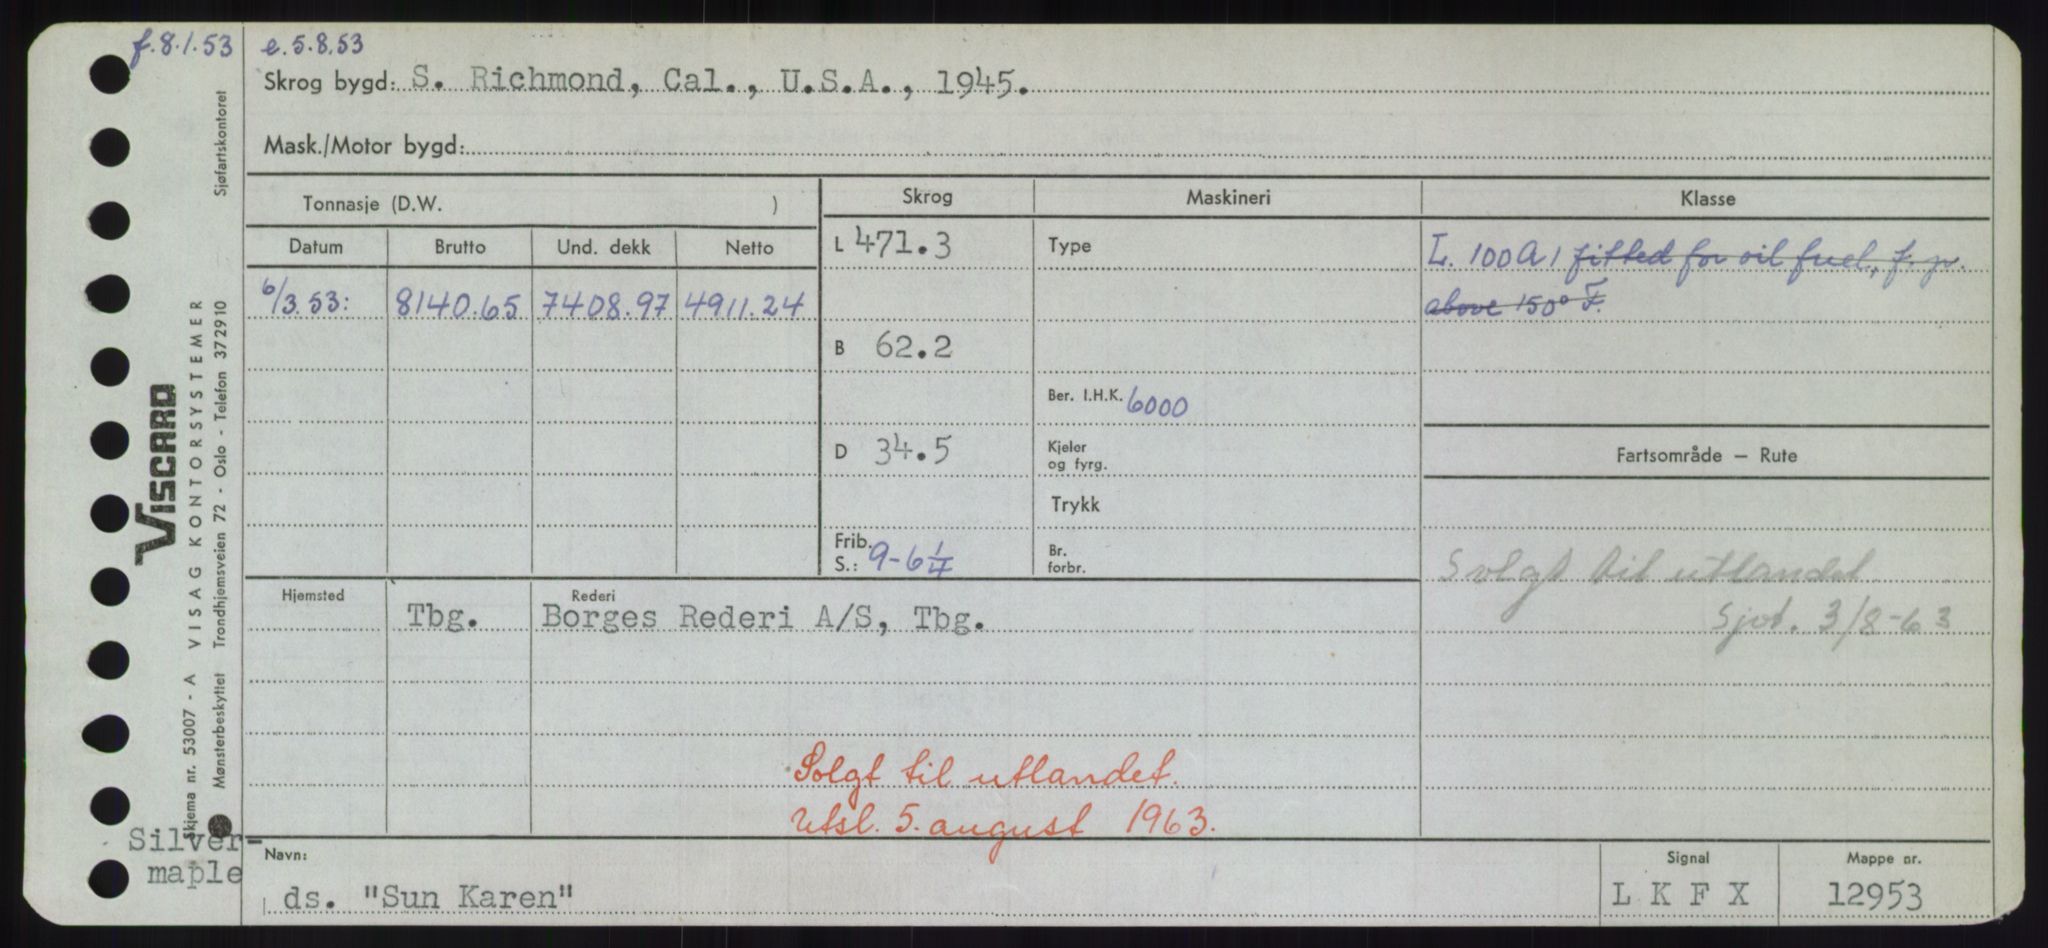 f. 8.1.53 e. 5.8.53
Skrog bygd: S. Richmond, Cal., U.S.A., 1945.
Mask./Motor bygd:
Tonnasje (D.W. ) Skrog Maskineri Klasse
Datum Brutto Und. dekk Netto L 471.3 Type L. 100A1 fitted for oil fuel, f.p.
6/3.53: 8140.65 7408.97 4911.24 above 150° F.
B 62.2
Ber. I.H.K. 6000
D 34.5 Kjeler
og fyrg. Fartsområde – Rute
Trykk
Frib.
S.: 9-6 1/4 Br.
forbr. Solgt til utlandet
Sjøt. 3/8-63
Hjemsted Tbg. Rederi
Borges Rederi A/S, Tbg.
Solgt til utlandet.
Utsl. 5. august 1963.
Silver-
maple
Navn: ds. "Sun Karen"
Signal L K F X
Mappe nr. 12953
VISCARD
Skjema nr. 53007 - A VISAG KONTORSYSTEMER
Mønsterbeskyttet Trondhjemsveien 72 - Oslo - Telefon 372910 Sjøfartskontoret